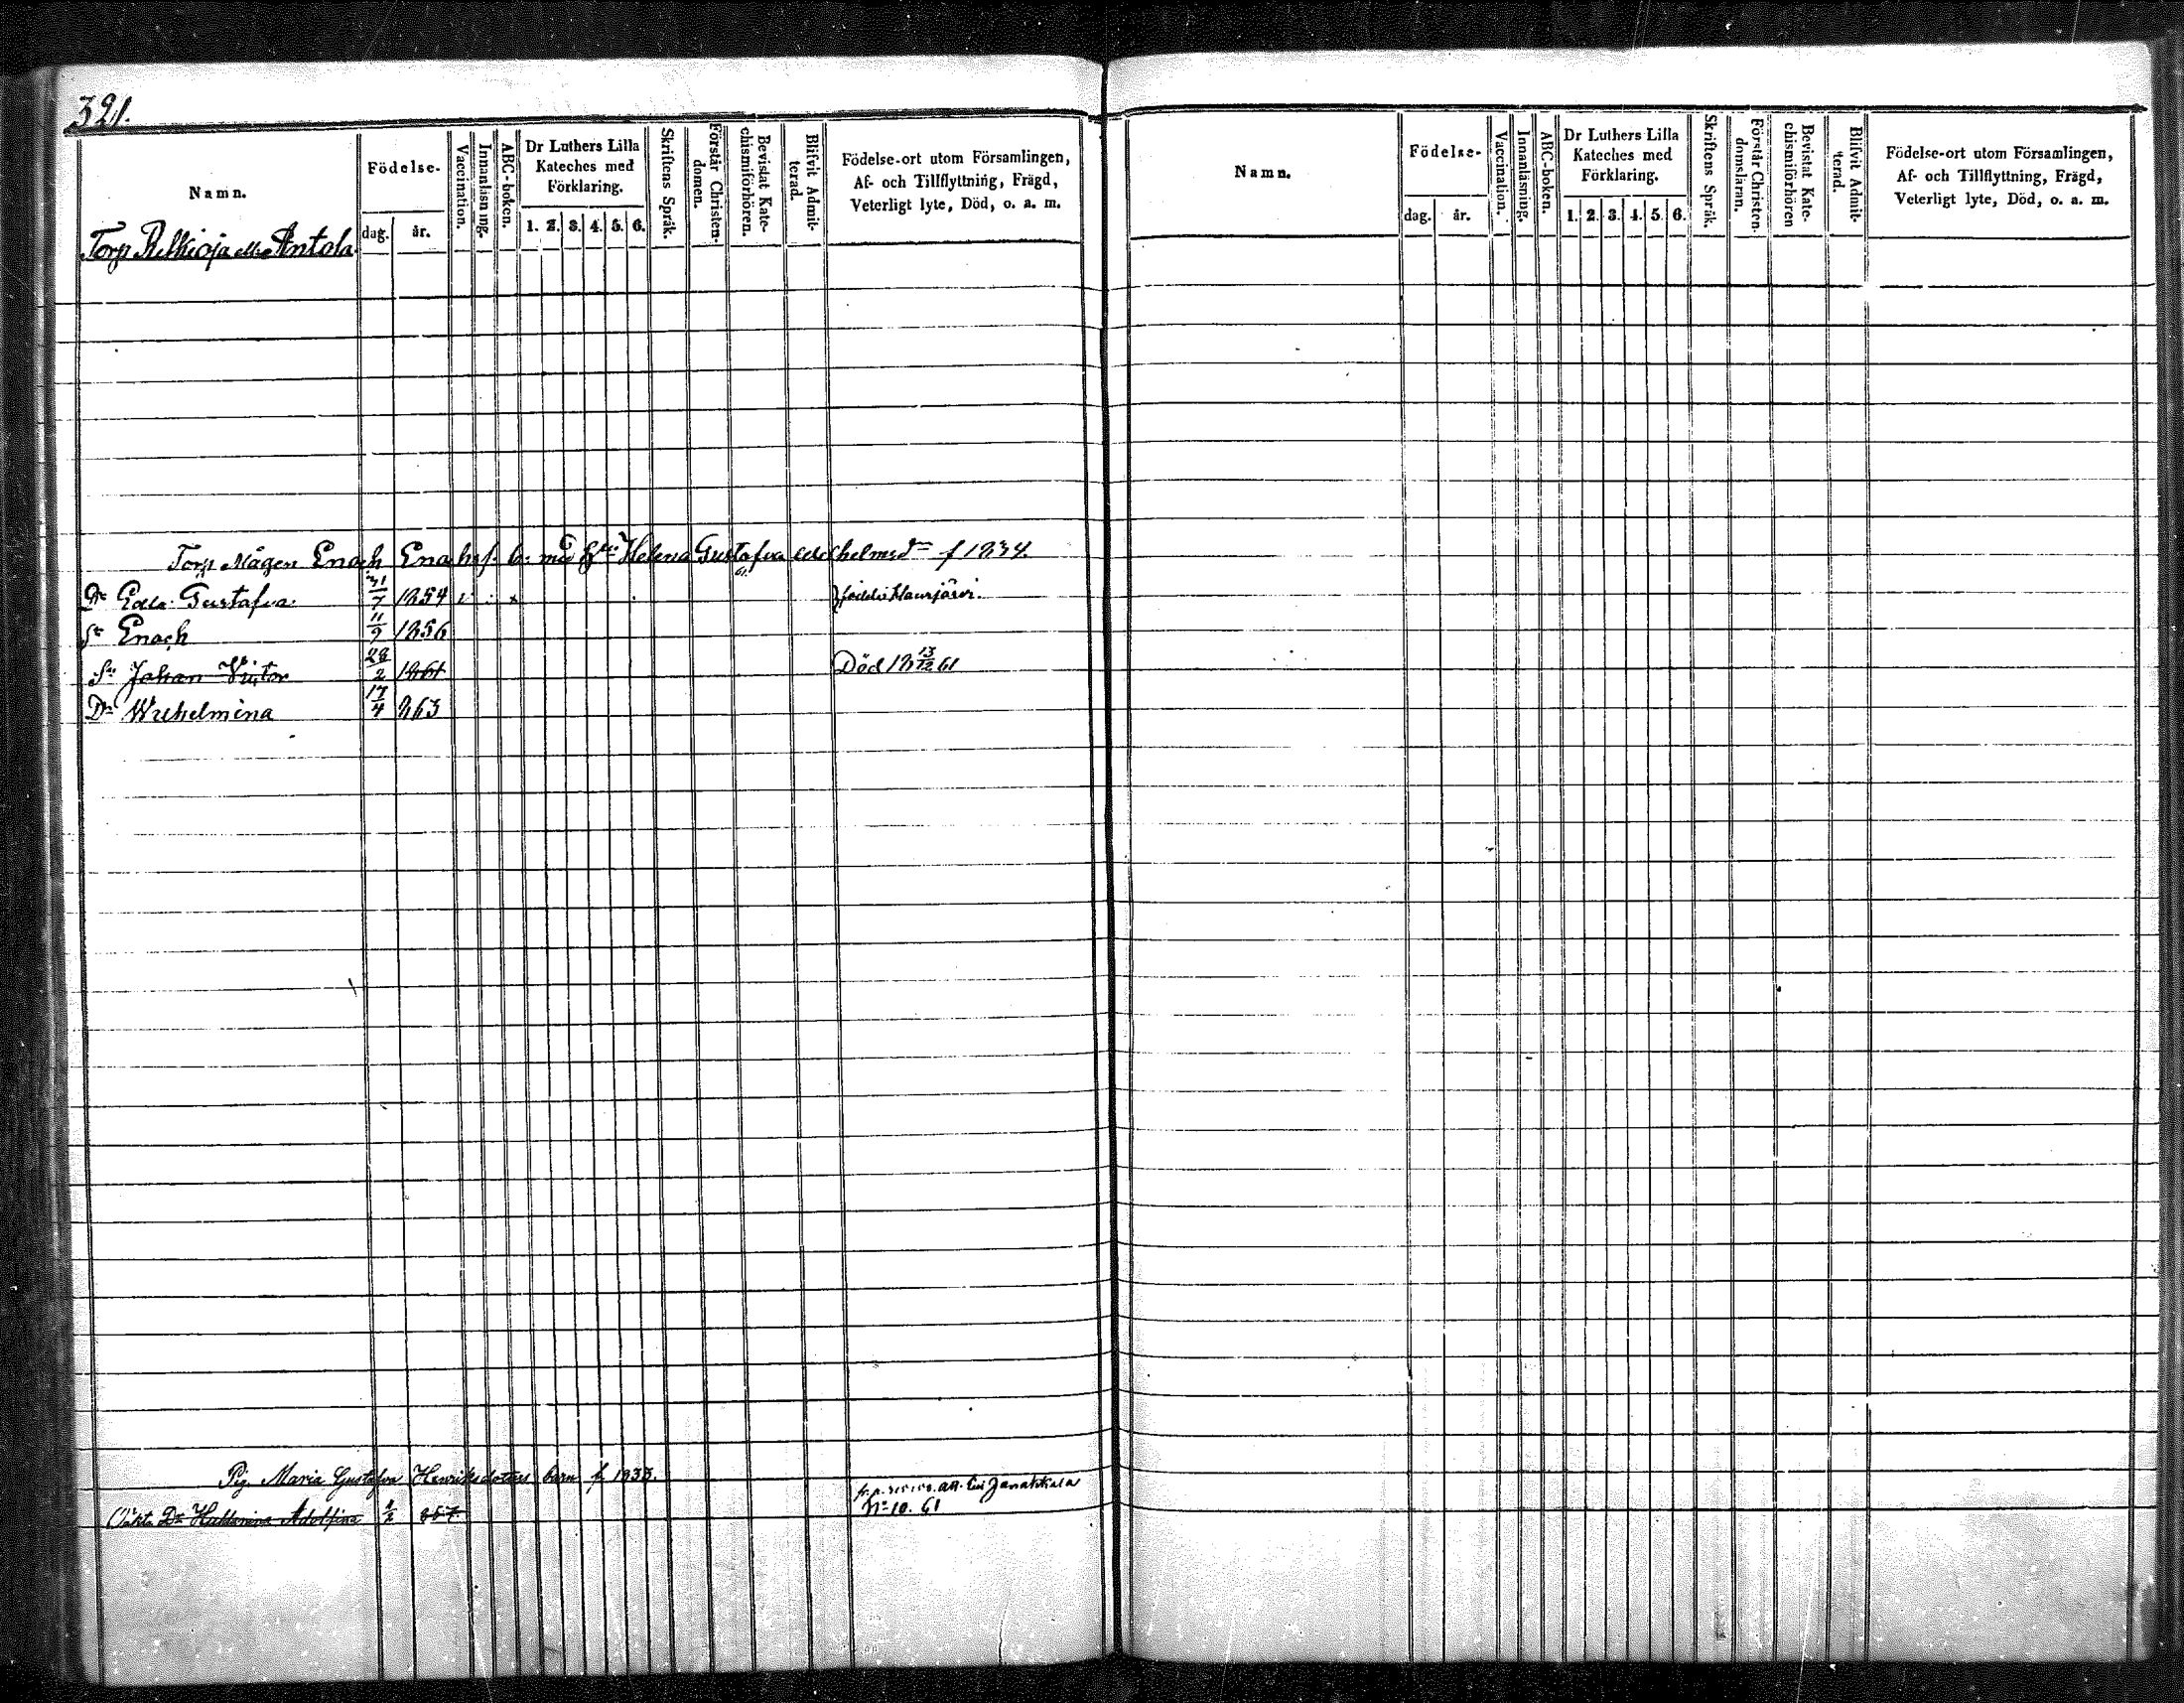 321.
Namn.
Födelse-
dag. år.
Vaccination.
Innanläsning.
ABC-boken.
Dr Luthers Lilla
Kateches med
Förklaring.
1. 2. 3. 4. 5. 6.
Skriftens Språk.
Förstår Christen-
domen.
Bevistat Kate-
chismiförhören.
Blifvit Admit-
terad.
Födelse-ort utom Församlingen,
Af- och Tillflyttning, Frägd,
Veterligt lyte, Död, o. a. m.
Torp Antola
Torp Mågen Enach Enachss. b: med Helena Gustafva f 1834.
Dr Gustafva 31/7 1854
Sn Enach 11/9 1856
Sn Johan Victor 28/2 1861 Död 18 13/12 61
Dr Wilhelmina 17/4 863
Pig. Maria Gustafva Henriksdotters barn f 1833.
Oäkta Dr Adolfina 857 Janakkala
No 10. 61
Namn.
Födelse-
dag. år.
Vaccination.
Innanläsning.
ABC-boken.
Dr Luthers Lilla
Kateches med
Förklaring.
1. 2. 3. 4. 5. 6.
Skriftens Språk.
Förstår Christen-
domsläran.
Bevistat Kate-
chismiförhören
Blifvit Admit-
terad.
Födelse-ort utom Församlingen,
Af- och Tillflyttning, Frägd,
Veterligt lyte, Död, o. a. m.